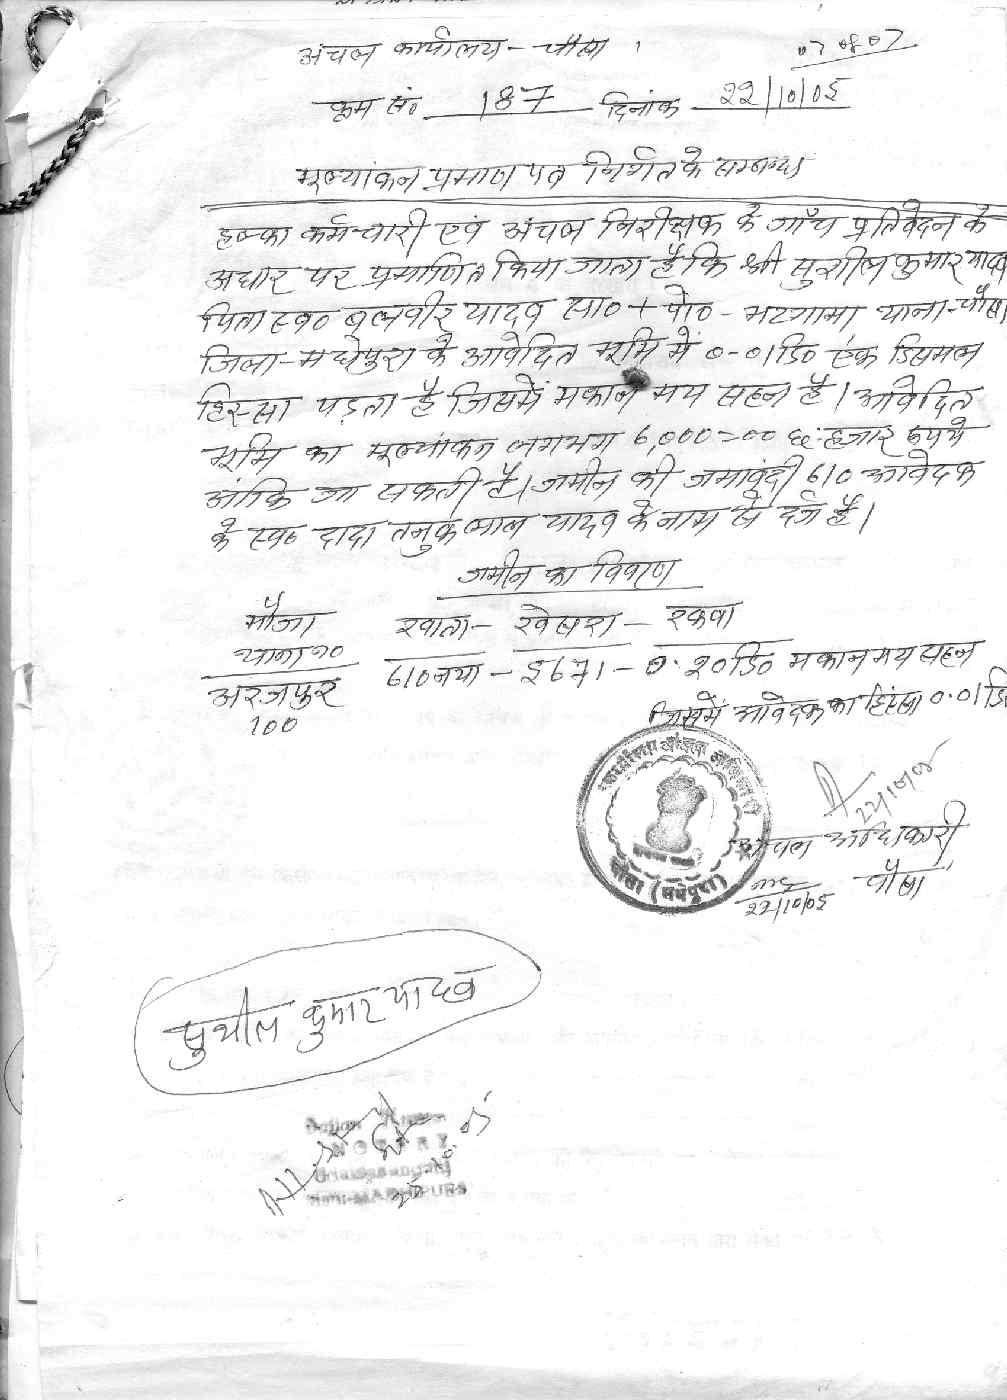 अंचल कार्यालय - चौसा
07 08 07
क्रम सं० 187 दिनांक 22/10/05
मूल्यांकन प्रमाण पत्र निर्गत के सम्बन्ध
हल्का कर्मचारी एवं अंचल निरीक्षक के जाँच प्रतिवेदन के
अधार पर प्रमाणित किया जाता है कि श्री सुशील कुमार यादव
पिता स्व० बलवीर यादव सा० + पो० - भटगामा थाना - चौसा
जिला - मधेपुरा के आवेदित भूमि में ०-०1डि० एक डिसमल
हिस्सा पड़ता है जिसमें मकान मय सहन है। आवेदित
भूमि का मूल्यांकन लगभग 6,000=00 छ: हजार रूपये
आंकि जा सकती है। जमीन की जमाबंदी 610 आवेदक
के स्व० दादा तनुकलाल यादव के नाम से दर्ज है।
जमीन का विवरण
मौजा खाता - खेसरा - रकवा
थाना न०
610 नया - 3671 - 0.20डि० मकान मय सहन
अरजपुर
100
जिसमें आवेदक का हिस्सा 0.01डि
अंचल अधिकारी
चौसा
22/10/05
चौसा (मधेपुरा)
सुशील कुमार यादव
NOTARY
MADHEPURA